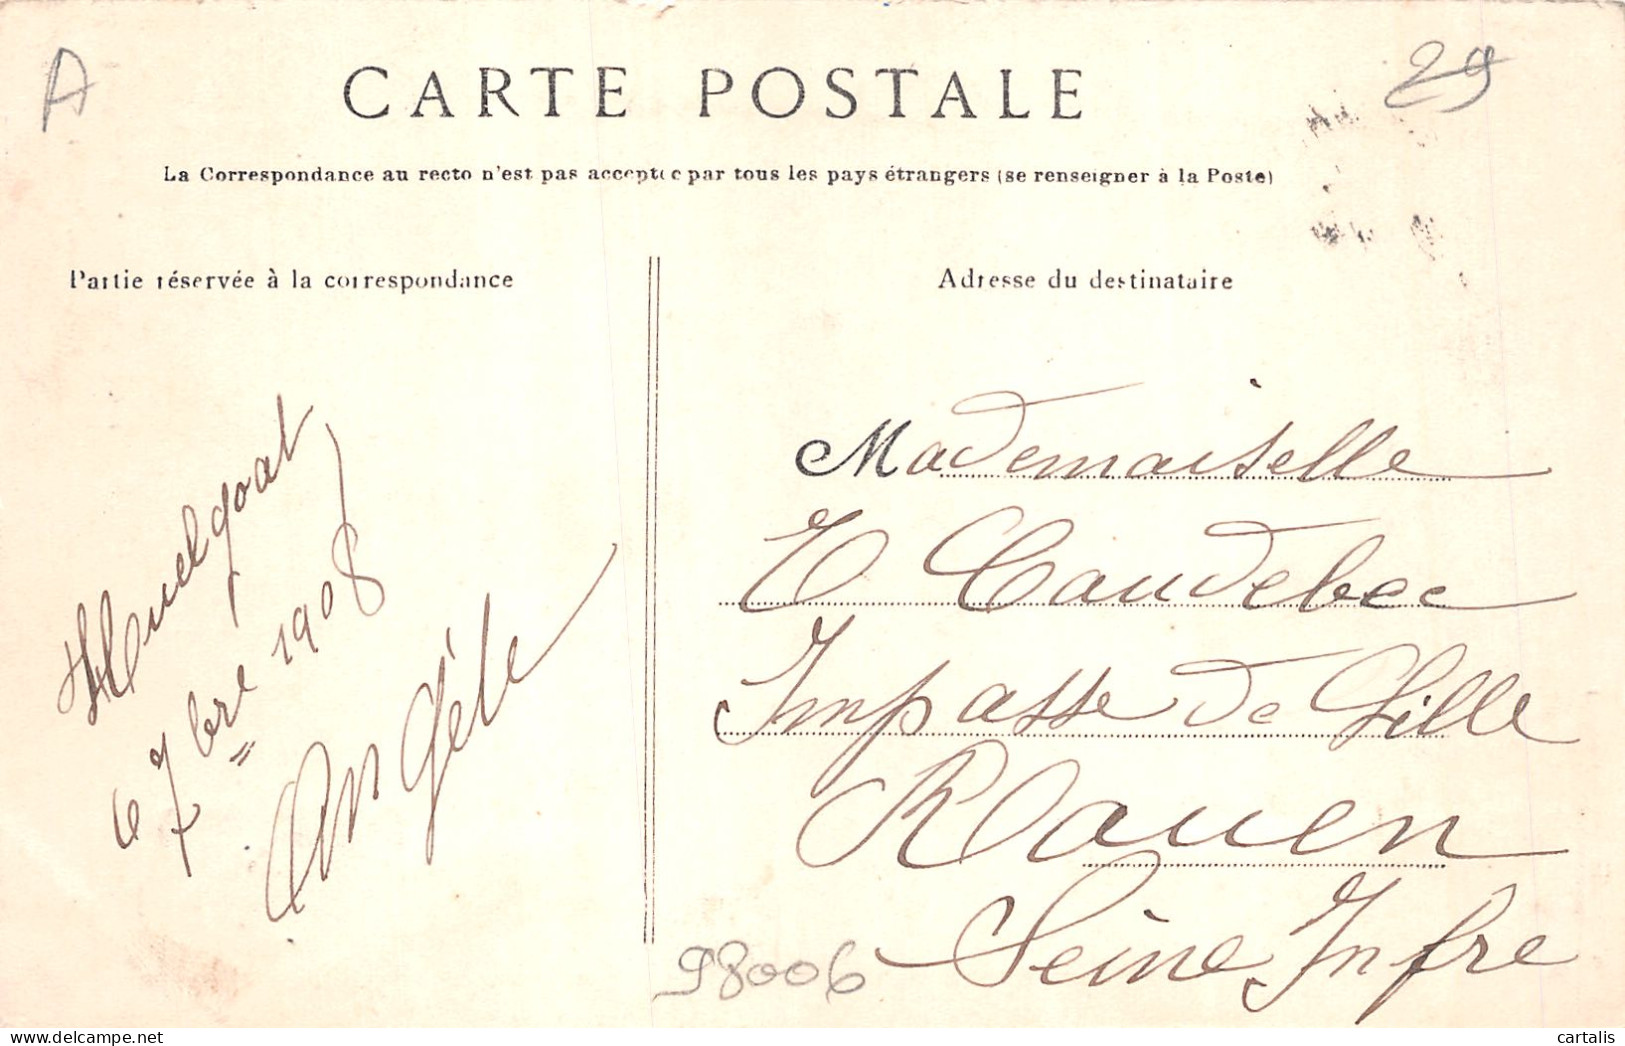 A
29
CARTE POSTALE
La Correspondance au recto n'est pas acceptée par tous les pays étrangers (se renseigner à la Poste)
Partie réservée à la correspondance
Adresse du destinataire
Huelgoat
6 7bre 1908
Angèle
Mademoiselle
E Caudebec
Impasse de Gille
Rouen
Seine Infre
98006
cartalis